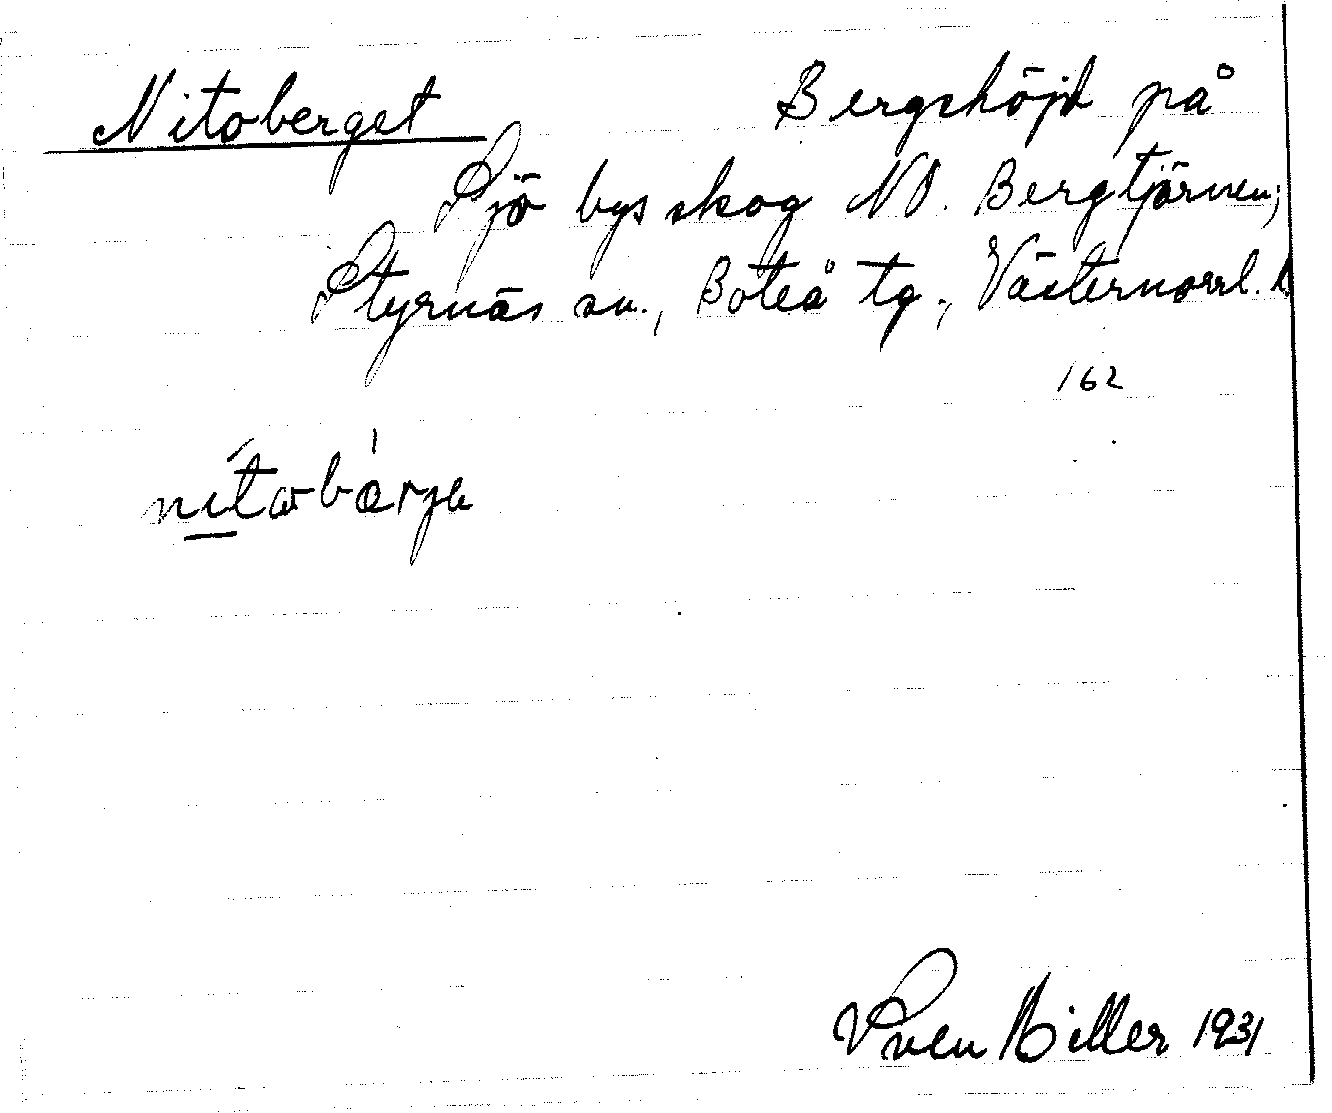 Nitoberget Bergshöjd på
Sjö bys skog NO. Bergtjärnen,
Styrnäs sn., Boteå tg., Västernorrl. l.
162
nitobærje
Sven Hiller 1931